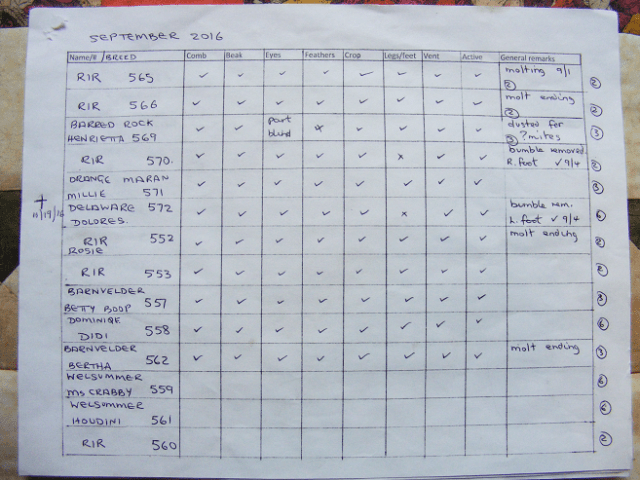 SEPTEMBER 2016
Name/# /BREED Comb Beak Eyes Feathers Crop Legs/feet Vent Active General remarks
RIR 565 ✓ ✓ ✓ ✓ ✓ ✓ ✓ ✓ molting 9/1
② ②
RIR 566 ✓ ✓ ✓ ✓ ✓ ✓ ✓ ✓ molt ending
② ②
BARRED ROCK part dusted for
HENRIETTA 569 ✓ ✓ blind x ✓ ✓ ✓ ✓ ③ ?mites ③
RIR 570. ✓ ✓ ✓ ✓ ✓ x ✓ ✓ bumble removed
R. foot ✓ 9/4 ②
ORANGE MARAN
MILLIE 571 ✓ ✓ ✓ ✓ ✓ ✓ ✓ ✓ ③
† DELAWARE 572 ✓ ✓ ✓ ✓ ✓ x ✓ ✓ bumble rem. ⑥
11/19/16 DOLORES. L. foot ✓ 9/4
RIR 552 ✓ ✓ ✓ ✓ ✓ ✓ ✓ ✓ molt ending
ROSIE ②
RIR 553 ✓ ✓ ✓ ✓ ✓ ✓ ✓ ✓ ②
BARNVELDER
BETTY BOOP 557 ✓ ✓ ✓ ✓ ✓ ✓ ✓ ✓ ③
DOMINIQE
DIDI 558 ✓ ✓ ✓ ✓ ✓ ✓ ✓ ✓ ⑥
BARNVELDER molt ending
BERTHA 562 ✓ ✓ ✓ ✓ ✓ ✓ ✓ ✓ ③
WELSUMMER
Ms CRABBY 559 ⑥
WELSUMMER
HOUDINI 561 ⑥
RIR 560 ②